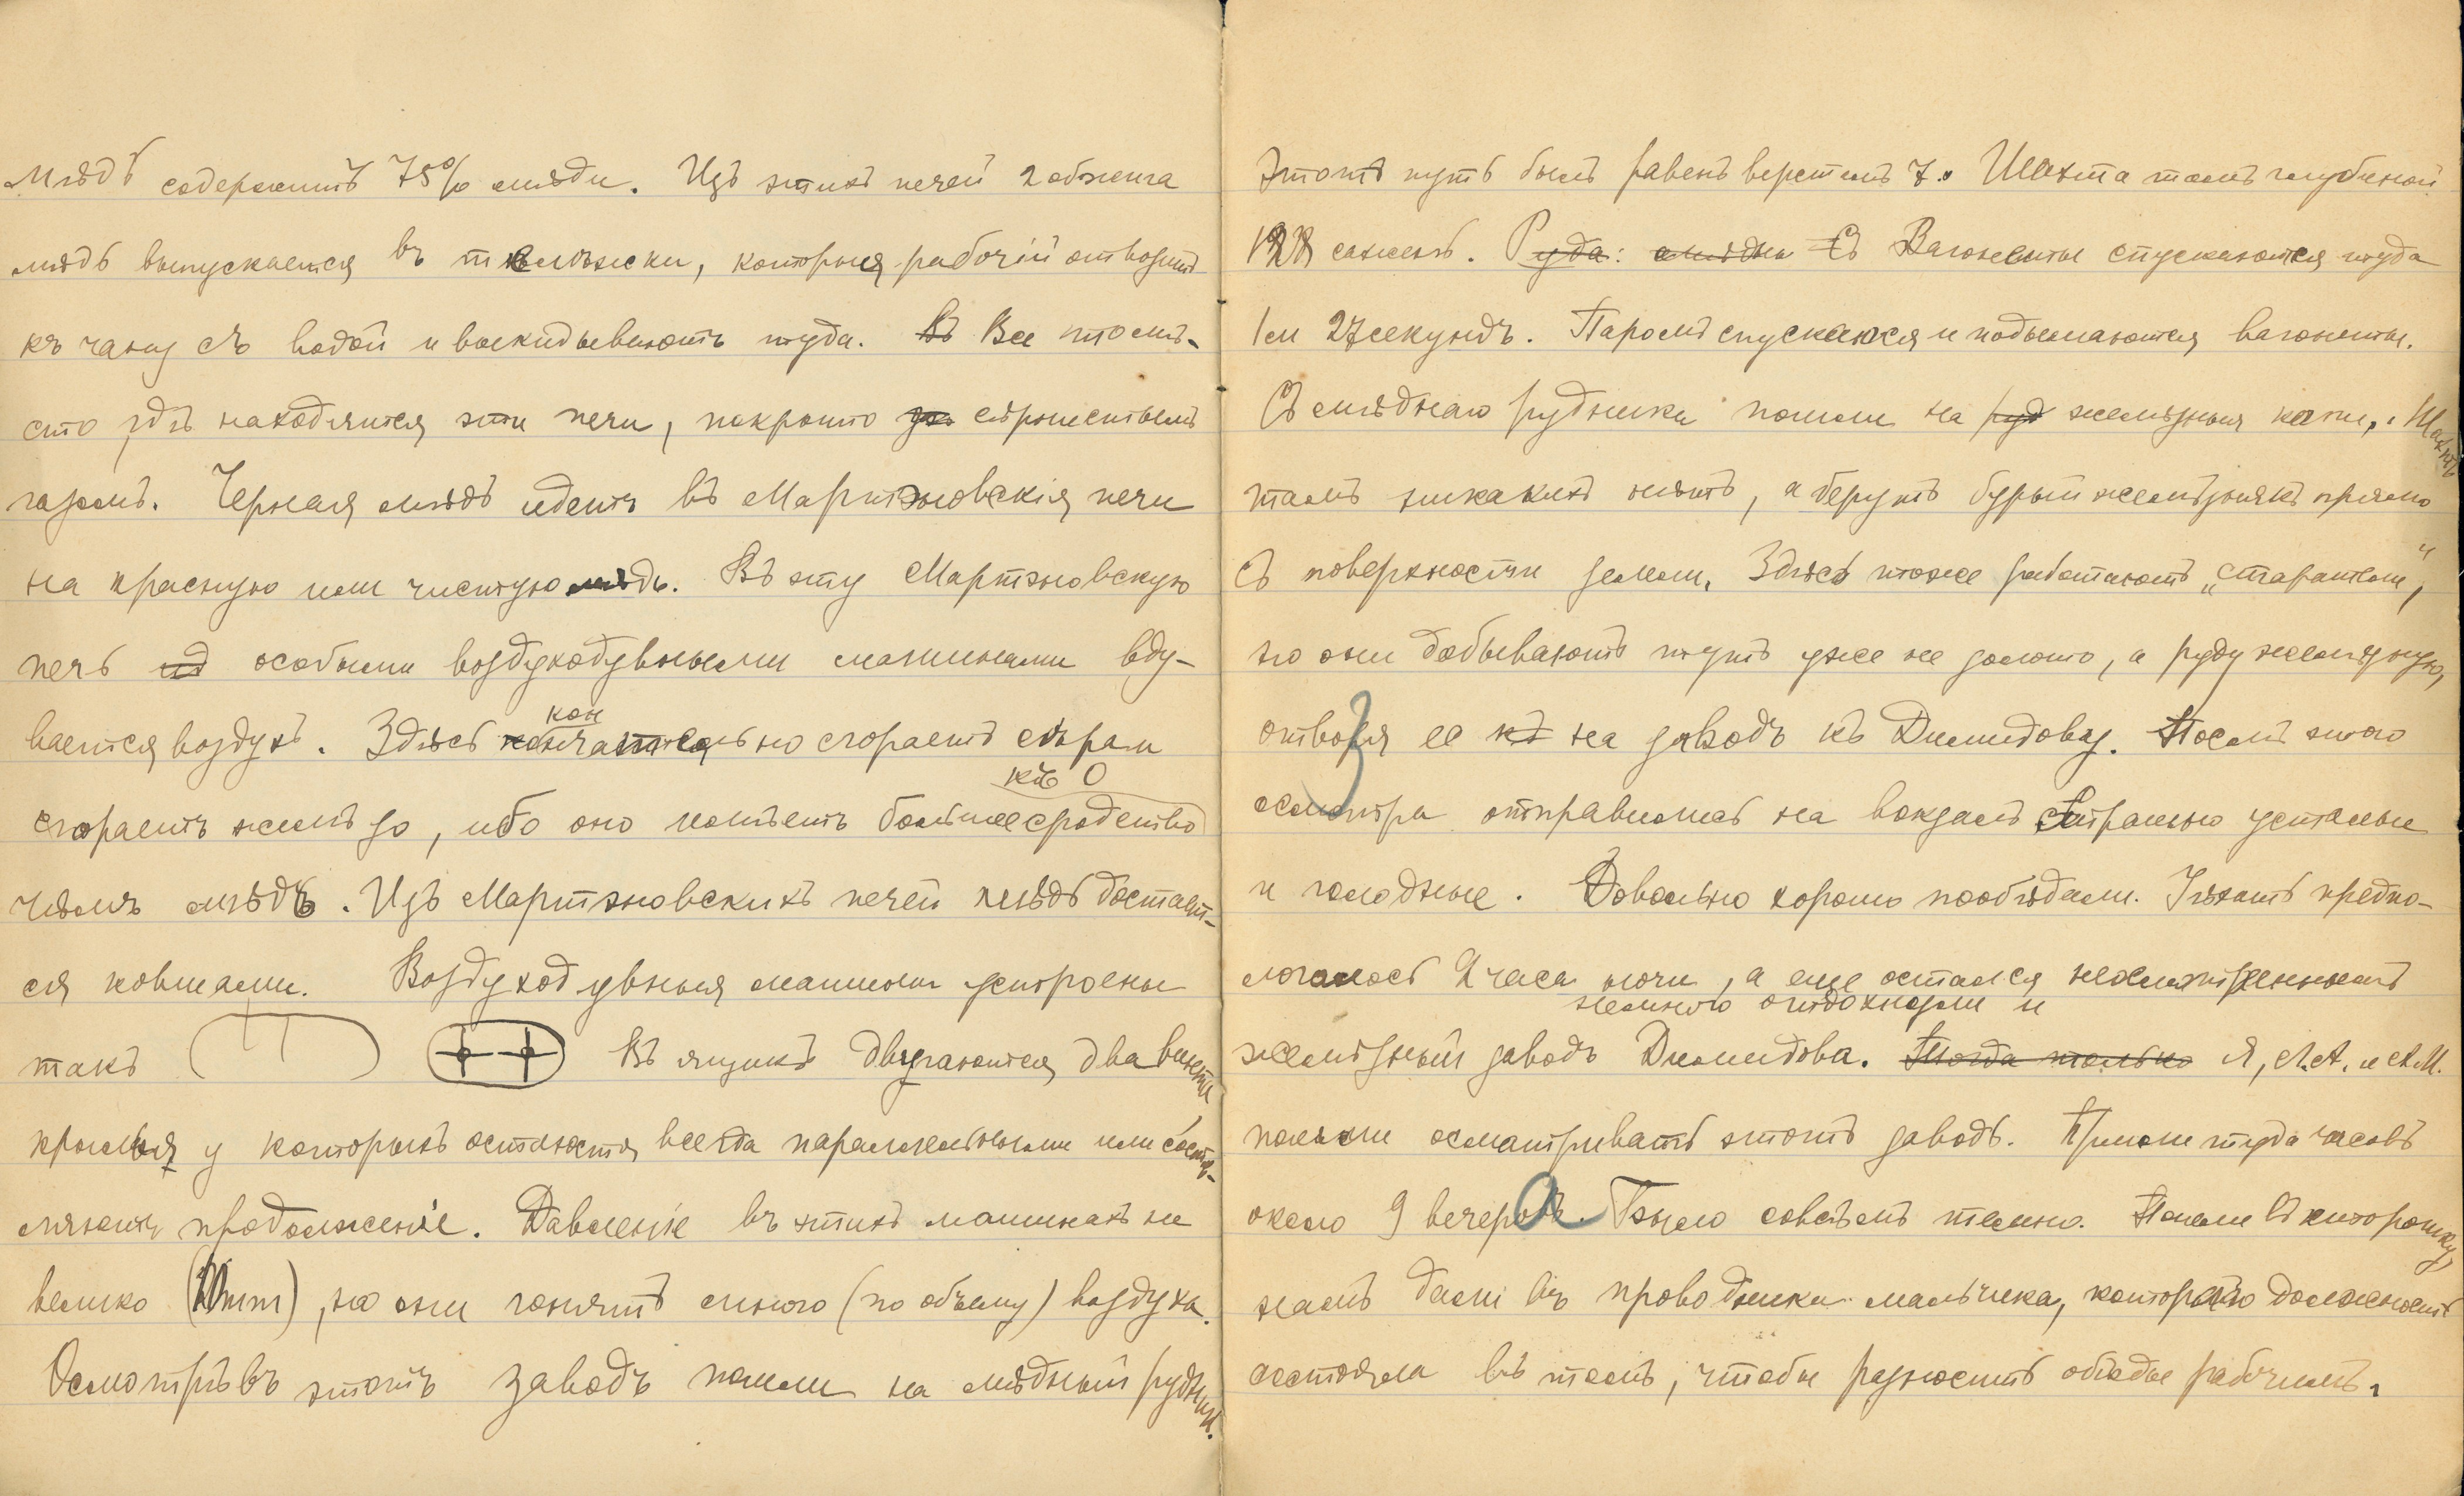 мѣдь содержитъ 75% мѣди. Изъ этихъ печей 2 обжига
мѣдь выпускается въ телѣжски, которыя рабочій отвозитъ
къ чану съ водой и выкидываютъ туда. Въ Все то мѣ-
сто гдѣ находятся эти печи, покрыто га сѣрнистымъ
газомъ. Черная мѣдь идетъ въ Мартэновскія печи
на красную или чистую мѣдь. Въ эту Мартэновскую
печь ид особыми воздуходувными машинами вду-
вается воздухъ. Здѣсь кончательно сгораетъ сѣра и
кон
къ О
сгораетъ желѣзо, ибо оно имѣетъ большее сродство
чѣмъ мѣдь. Изъ Мартэновскихъ печей мѣдь достает-
ся ковшами. Воздуходувныя машины устроены
такъ Въ ящикѣ двигаются два винта
крылья у которыхъ остаются всегда параллельными или состав-
ляютъ продолженіе. Давленіе въ этихъ машинахъ не
велико ( mm), но они гонятъ много (по объему) воздуха.
Осмотрѣвъ этотъ заводъ пошли на мѣдный рудникъ.
Этотъ путь былъ равенъ верстамъ 7. Шахта тамъ глубиной
сажень. Руда: мѣдны Съ Вагонеты спускаются туда
1 м 27 секундъ. Паромъ спускаюся и подымаются вагонеты.
Съ мѣднаго рудника пошли на руд желѣзныя копи, Шахтъ
тамъ никакихъ нѣтъ, а берутъ бурый желѣзнякъ прямо
съ поверхности земли. Здѣсь тоже работаютъ „старатели",
но они добываютъ тутъ уже не золото, а руду желѣзную,
отвозя ее къ на заводъ къ Димидову. Послѣ этого
осмотра отправились на вокзалъ страшно усталые
и голодные. Довольно хорошо пообѣдали. Уѣхать предпо-
логалось 2 часа ночи, а еще остался неосмотреннымъ
немного отдохнули и
желѣзный заводъ Димидова. Тогда только Я, А.А. и А.М.
пошли осматривать этотъ заводъ. Пришли туда часовъ
около 9 вечера. Было совсѣмъ темно. Пошли въ контору,
намъ дали въ проводники мальчика, котораго должность
состояла въ томъ, чтобы разносить обѣды рабочимъ.